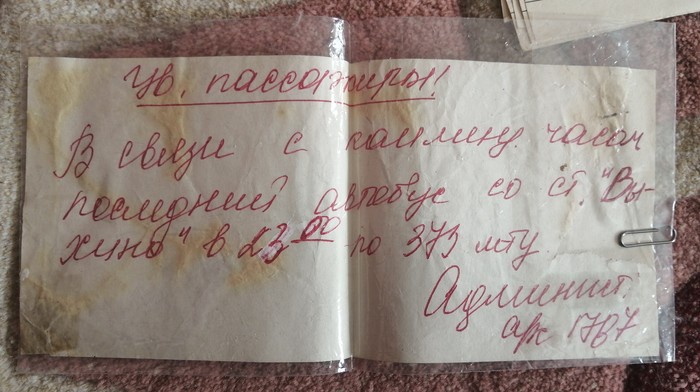 Ув. пассажиры!
В связи с каминд. часом
последний автобус со ст. "Вы-
хино" в 23 00 по 373 мту.
Админист.